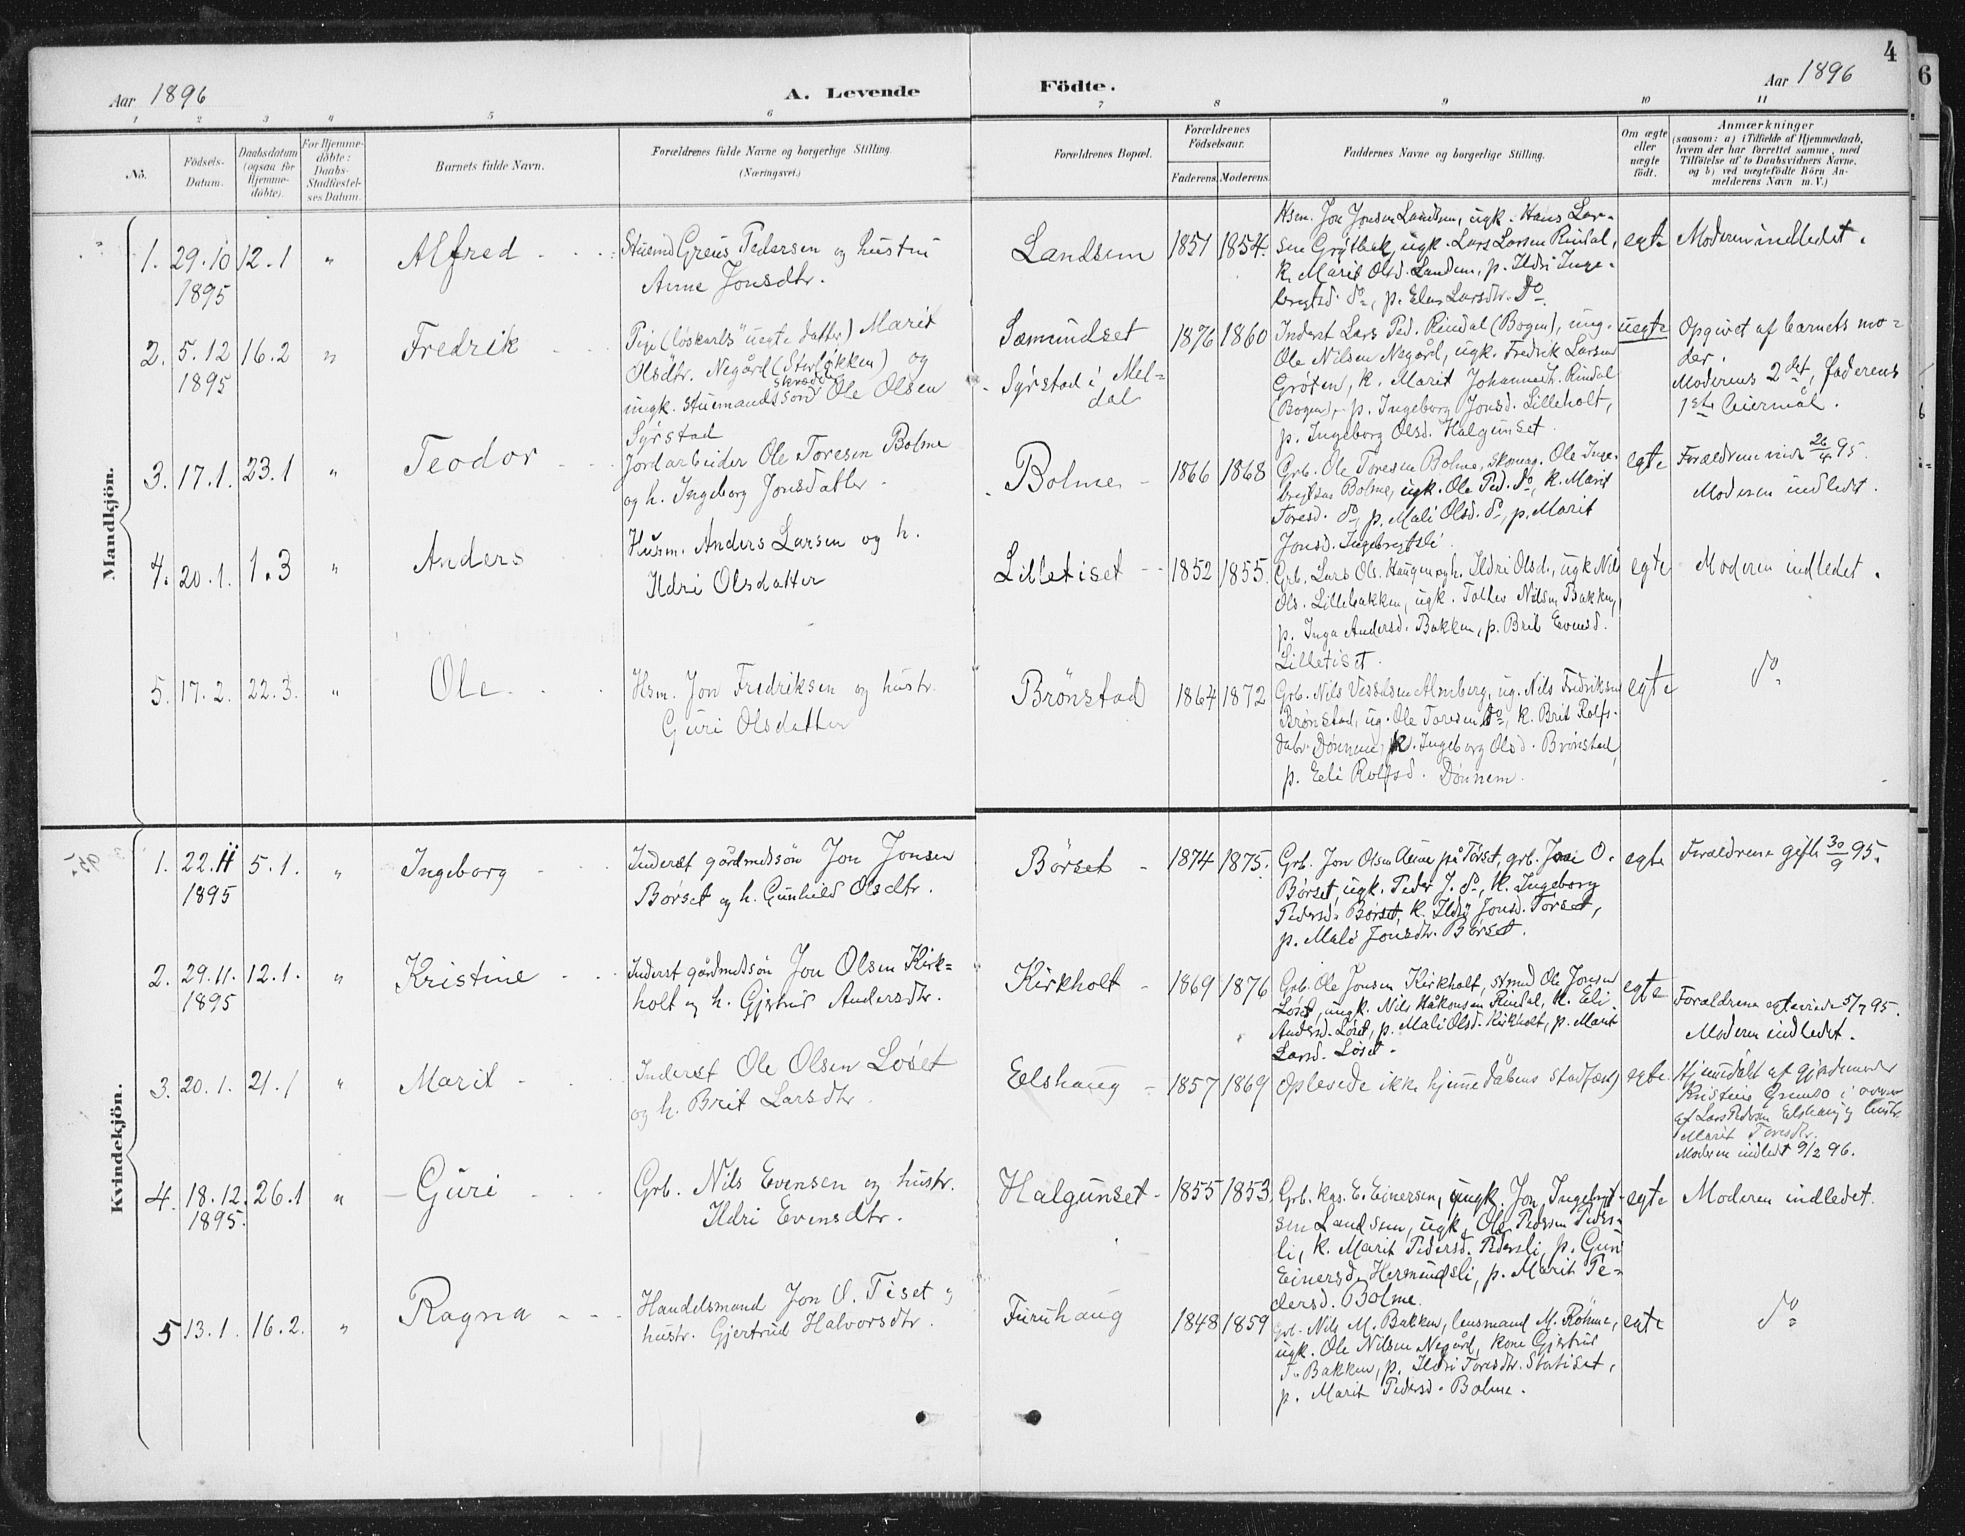 4
6
Aar 1896
A. Levende
Födte.
Aar 1896
1 2 3 4 5 6 7 8 9 10 11
No.
Födsels-
Datum.
Daabsdatum
(ogsaa for
Hjemme-
döbte).
For Hjemme-
döbte:
Daabs-
Stadfæstel-
ses Datum.
Barnets fulde Navn.
Forældrenes fulde Navne og borgerlige Stilling.
(Næringsvei.)
Forældrenes Bopæl.
Forældrenes
Födselsaar.
Faderens. Moderens.
Faddernes Navne og borgerlige Stilling.
Om ægte
eller
uægte
födt.
Anmærkninger
(saasom: a) i Tilfælde af Hjemmedaab,
hvem der har forrettet samme, med
Tilföielse af to Daabsvidners Navne,
og b) ved uægtefödte Börn An-
melderens Navn m. V.)
Mandkjön.
1. 29.10 12.1 " Alfred
1895
Stusmd Greus Pedersen og hustru
Anne Jonsdtr.
Landsem 1851 1854.
Hsm. Jon Jonsen Landsem, ugk. Hans Lar-
sen Grøtbæk, ugk. Lars Larsen Rindal,
k. Marit Olsd. Landsem, p. Ildri Inge-
brigtsd. do, p. Elen Larsdtr. Do
egte Moderen indledet.
2. 5.12 16.2 " Fredrik
1895
Pige (löskarls uegte datter) Marit
Olsdtr. Negård (Storløkken) og
skrædder
ungk. stuemandssøn Ole Olsen
Syrstad
Sæmundset
Syrstad i Mel-
dal
1876 1860
Inderst Lars Ped. Rindal (Bogen), ung.
Ole Nilsen Negård, ugk. Fredrik Larsen
Grøten, k. Marit Johannedtr. Rindal
(Bogen), p. Ingeborg Jonsd. Lilleholt,
p. Ingeborg Olsd. Halgunset
uegte Opgivet af barnets mo-
der.
Moderens 2det, faderens
1ste leiermål.
3. 17.1. 23.1 " Teodor
Jordarbeider Ole Toresen Bolme
og h. Ingeborg Jonsdatter.
Bolme 1866 1868
Grb. Ole Toresen Bolme, Ole Inge-
brigtsen Bolme, ugk. Ole Ped. do, k. Marit
Toresd. do, p. Mali Olsd. do, p. Marit
Jonsd. Ingebrigtsli.
egte Forældrene viede 26/4 95.
Moderen indledet.
4. 20.1. 1.3 " Anders
Husm. Anders Larsen og h.
Ildri Olsdatter
Lilletiset 1852 1855.
Grb. Lars Ols. Haugen og h. Ildri Olsd., ugk Nils
Ols. Lillebakken, ugk. Tollev Nilsen Bakken,
p. Inga Andersd. Bakken, p. Brit Evensd.
Lilletiset.
egte Moderen indledet.
5. 17.2. 22.3. " Ole
Hsm. Jon Fredriksen og hustr.
Guri Olsdatter
Brönstad 1864 1872
Grb. Nils Vesselsen Almberg, ug. Nils Fredriksen
Brønstad, ug. Ole Toresen Do, k. Brit Rolfs-
datr. Dønnem, k. Ingeborg Olsd. Brønstad,
p. Eli Rolfsd. Dönnem.
egte do
Kvindekjön.
1. 22.11 5.1. " Ingeborg
1895
Inderst gårdmdssön Jon Jonsen
Børset og h. Gunhild Olsdtr.
Börset 1874 1875.
Grb. Jon Olsen Aune på Torset, grb. Jon O.
Børset, ugk. Peder J. do, k. Ingeborg
Pedersd. Børset, k. Ildri Jonsd. Torset,
p. Mali Jonsdtr. Børset.
egte Forældrene gifte 30/9 95.
2. 29.11. 12.1. " Kristine
1895
Inderst gårdmdssön Jon Olsen Kirk-
holt og h. Gjertrud Andersdtr.
Kirkholt 1869 1876
Grb. Ole Jonsen Kirkholt, stmd Ole Jonsen
Løset, ungk. Nils Håkonsen Rindal, k. Eli
Andersd. Løset, p. Mali Olsd. Kirkholt, p. Marit
Larsd. Løset.
egte Forældrene egteviede 5/7 95.
Moderen indledet.
3. 20.1. 21.1 " Marit
Inderst Ole Olsen Løset
og h. Brit Larsdtr.
Elshaug 1857 1869
Oplevede ikke hjemmedåbens stadfæst.
egte. Hjemmedöbt af gjordemoder
Kristine i overvær
af Lars Pedersen Elshaug og hustr.
Marit Toresdtr.
Moderen indledt 9/2 96.
4. 18.12. 26.1 " Guri
1895.
Grb. Nils Evensen og hustr.
Ildri Evensdtr.
Halgunset 1855 1853
Grb. E. Einersen, ungk. Jon Ingebrigt-
sen Landsem, ugk. Ole Pedersen Peders-
li, k. Marit Pedersd. Pedersli, p. Guri
Einersd. Hermundsli, p. Marit Pe-
dersd. Bolme.
egte Moderen indledet.
5 13.1. 16.2. " Ragna
Handelsmand Jon O. Tiset og
hustr. Gjertrud Halvorsdtr.
Furuhaug 1848 1859
Grb. Nils M. Bakken, lensmand M. Röhme,
ugk. Ole Nilsen Negård, kone Gjertrud
T. Bakken, p. Ildri Toresdtr. Stortiset,
p. Marit Pedersd. Bolme.
egte do